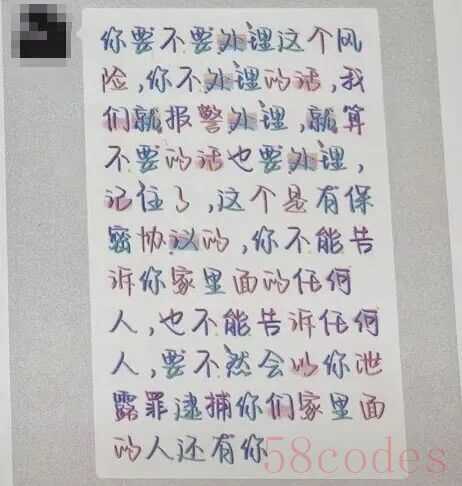 你要不要处理这个风
险,你不处理的话,我
们就报警处理,就算
不要的话也要处理,
记住了,这个是有保
密协议的,你不能告
诉你家里面的任何
人,也不能告诉任何
人,要不然会以你泄
露罪逮捕你们家里面
的人还有你
58codes